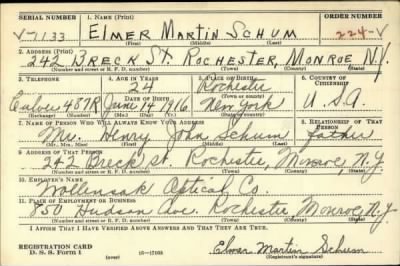 SERIAL NUMBER 1. NAME (Print) ORDER NUMBER
V-7133 ELMER MARTIN SCHUM 224-V
(First) (Middle) (Last)
2. ADDRESS (Print)
242 BRECK ST. ROCHESTER, MONROE N.Y.
(Number and street or R. F. D. number) (Town) (County) (State)
3. TELEPHONE 4. AGE IN YEARS 5. PLACE OF BIRTH 6. COUNTRY OF CITIZENSHIP
24 Rochester
DATE OF BIRTH (Town or county)
487R June 14 1916 New York U.S.A
(Exchange) (Number) (Mo.) (Day) (Yr.) (State or country)
7. NAME OF PERSON WHO WILL ALWAYS KNOW YOUR ADDRESS 8. RELATIONSHIP OF THAT PERSON
Mr. Henry John Schum father
(Mr., Mrs., Miss) (First) (Middle) (Last)
9. ADDRESS OF THAT PERSON
242 Breck St. Rochester, Monroe, N.Y
(Number and street or R. F. D. number) (Town) (County) (State)
10. EMPLOYER'S NAME
Wollensak Optical Co.
11. PLACE OF EMPLOYMENT OR BUSINESS
850 Hudson Ave. Rochester Monroe, N.Y
(Number and street or R. F. D. number) (Town) (County) (State)
I AFFIRM THAT I HAVE VERIFIED ABOVE ANSWERS AND THAT THEY ARE TRUE.
REGISTRATION CARD
D. S. S. Form 1 (over) Elmer Martin Schum
(Registrant's signature)